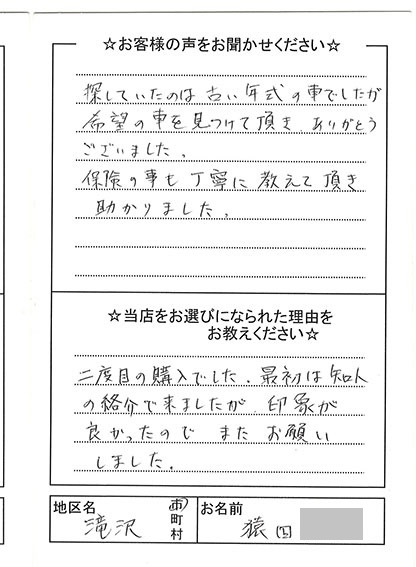 ☆お客様の声をお聞かせください☆
探していたのは古い年式の車でしたが
希望の車を見つけて頂き、ありがとう
ございました。
保険の事も丁寧に教えて頂き
助かりました。
☆当店をお選びになられた理由を
お教えください☆
二度目の購入でした。最初は知人
の紹介で来ましたが、印象が
良かったので またお願い
しました。
地区名
滝沢
市
町
村
お名前
猿